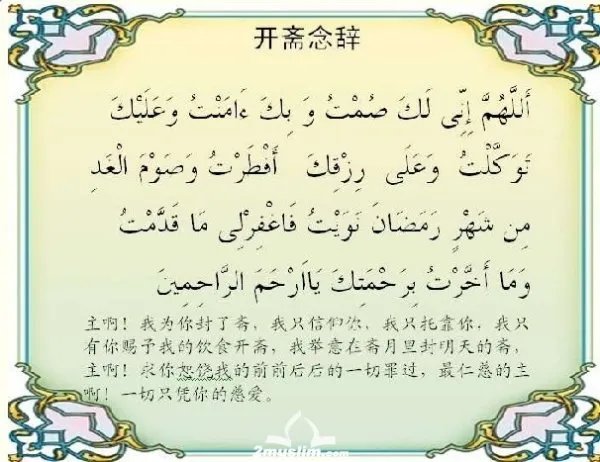 开斋念辞
أَللَّهُمَّ إِنِّى لَكَ صُمْتُ وَ بِكَ ءَامَنْتُ وَعَلَيْكَ
تَوَكَّلْتُ وَعَلَى رِزْقِكَ أَفْطَرْتُ وَصَوْمَ الْغَدِ
مِن شَهْرِ رَمَضَانَ نَوَيْتُ فَاغْفِرْلِى مَا قَدَّمْتُ
وَمَا أَخَّرْتُ بِرَحْمَتِكَ يَااَرْحَمَ الرَّاحِمِينَ
主啊！我为你封了斋，我只信仰你，我只托靠你，我只
有你赐予我的饮食开斋，我举意在斋月里封明天的斋，
主啊！求你恕饶我的前前后后的一切罪过，最仁慈的主
啊！一切只凭你的慈爱。
2muslim.com